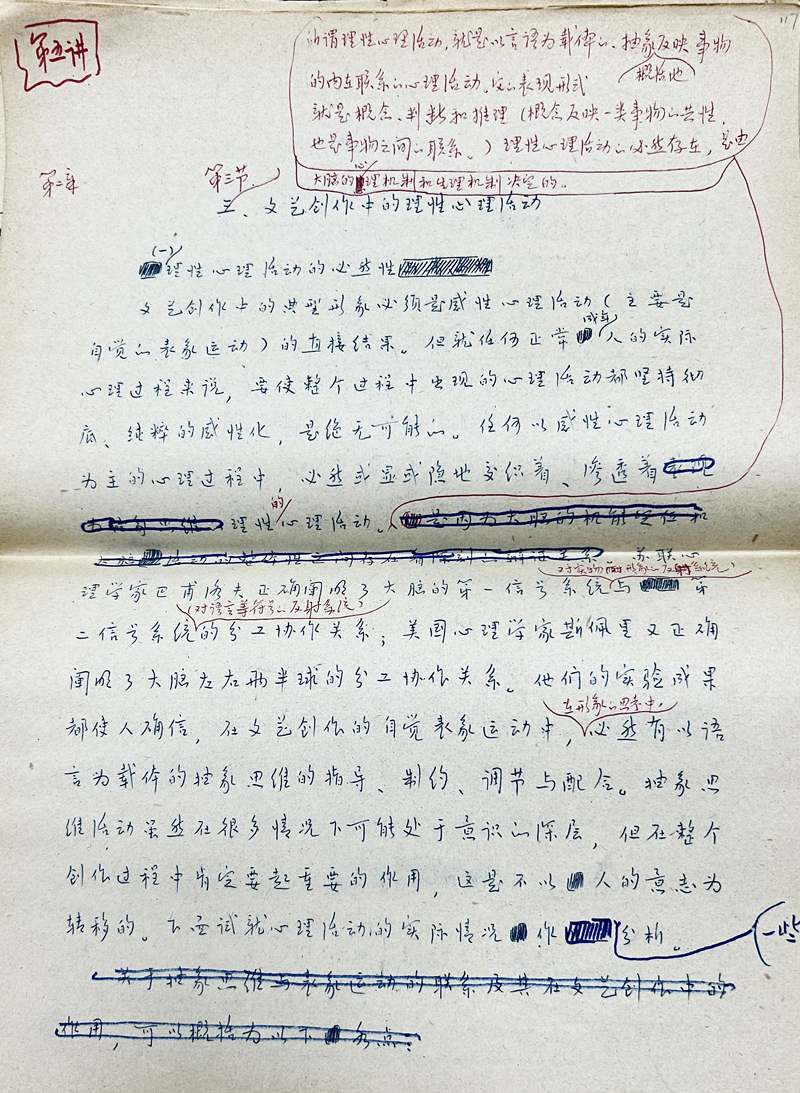 117
第五讲
所谓理性心理活动，就是以言语为载体的、抽象反映事物
概括地
的内在联系的心理活动。它的表现形式
就是概念、判断和推理（概念反映一类事物的共性，
也是事物之间的联系。）理性心理活动的必然存在，是由
大脑的心理机制和生理机制决定的。
第二章
第三节
三、文艺创作中的理性心理活动
(一)
理性心理活动的必然性
文艺创作上的典型形象必须是感性心理活动（主要是
自觉的表象运动）的直接结果。但就任何正常成年人的实际
心理过程来说，要使整个过程中出现的心理活动都坚持彻
底、纯粹的感性化，是绝无可能的。任何以感性心理活动
为主的心理过程中，必然或显或隐地交织着、渗透着
理性的心理活动。是因为大脑的机能定位和
苏联心
（对实物的形象的反射系统）
理学家巴甫洛夫正确阐明了大脑的第一信号系统与第
（对语言等符号的反射系统）
二信号系统的分工协作关系；美国心理学家斯佩里又正确
阐明了大脑左右两半球的分工协作关系。他们的实验成果
在形象的思考中，
都使人确信，在文艺创作的自觉表象运动中，必然有以语
言为载体的抽象思维的指导、制约、调节与配合。抽象思
维活动虽然在很多情况下可能处于意识的深层，但在整个
创作过程中肯定要起重要的作用，这是不以人的意志为
转移的。下面试就心理活动的实际情况作一些分析。
关于抽象思维与表象运动的联系及其在文艺创作中的
作用，可以概括为以下各点：